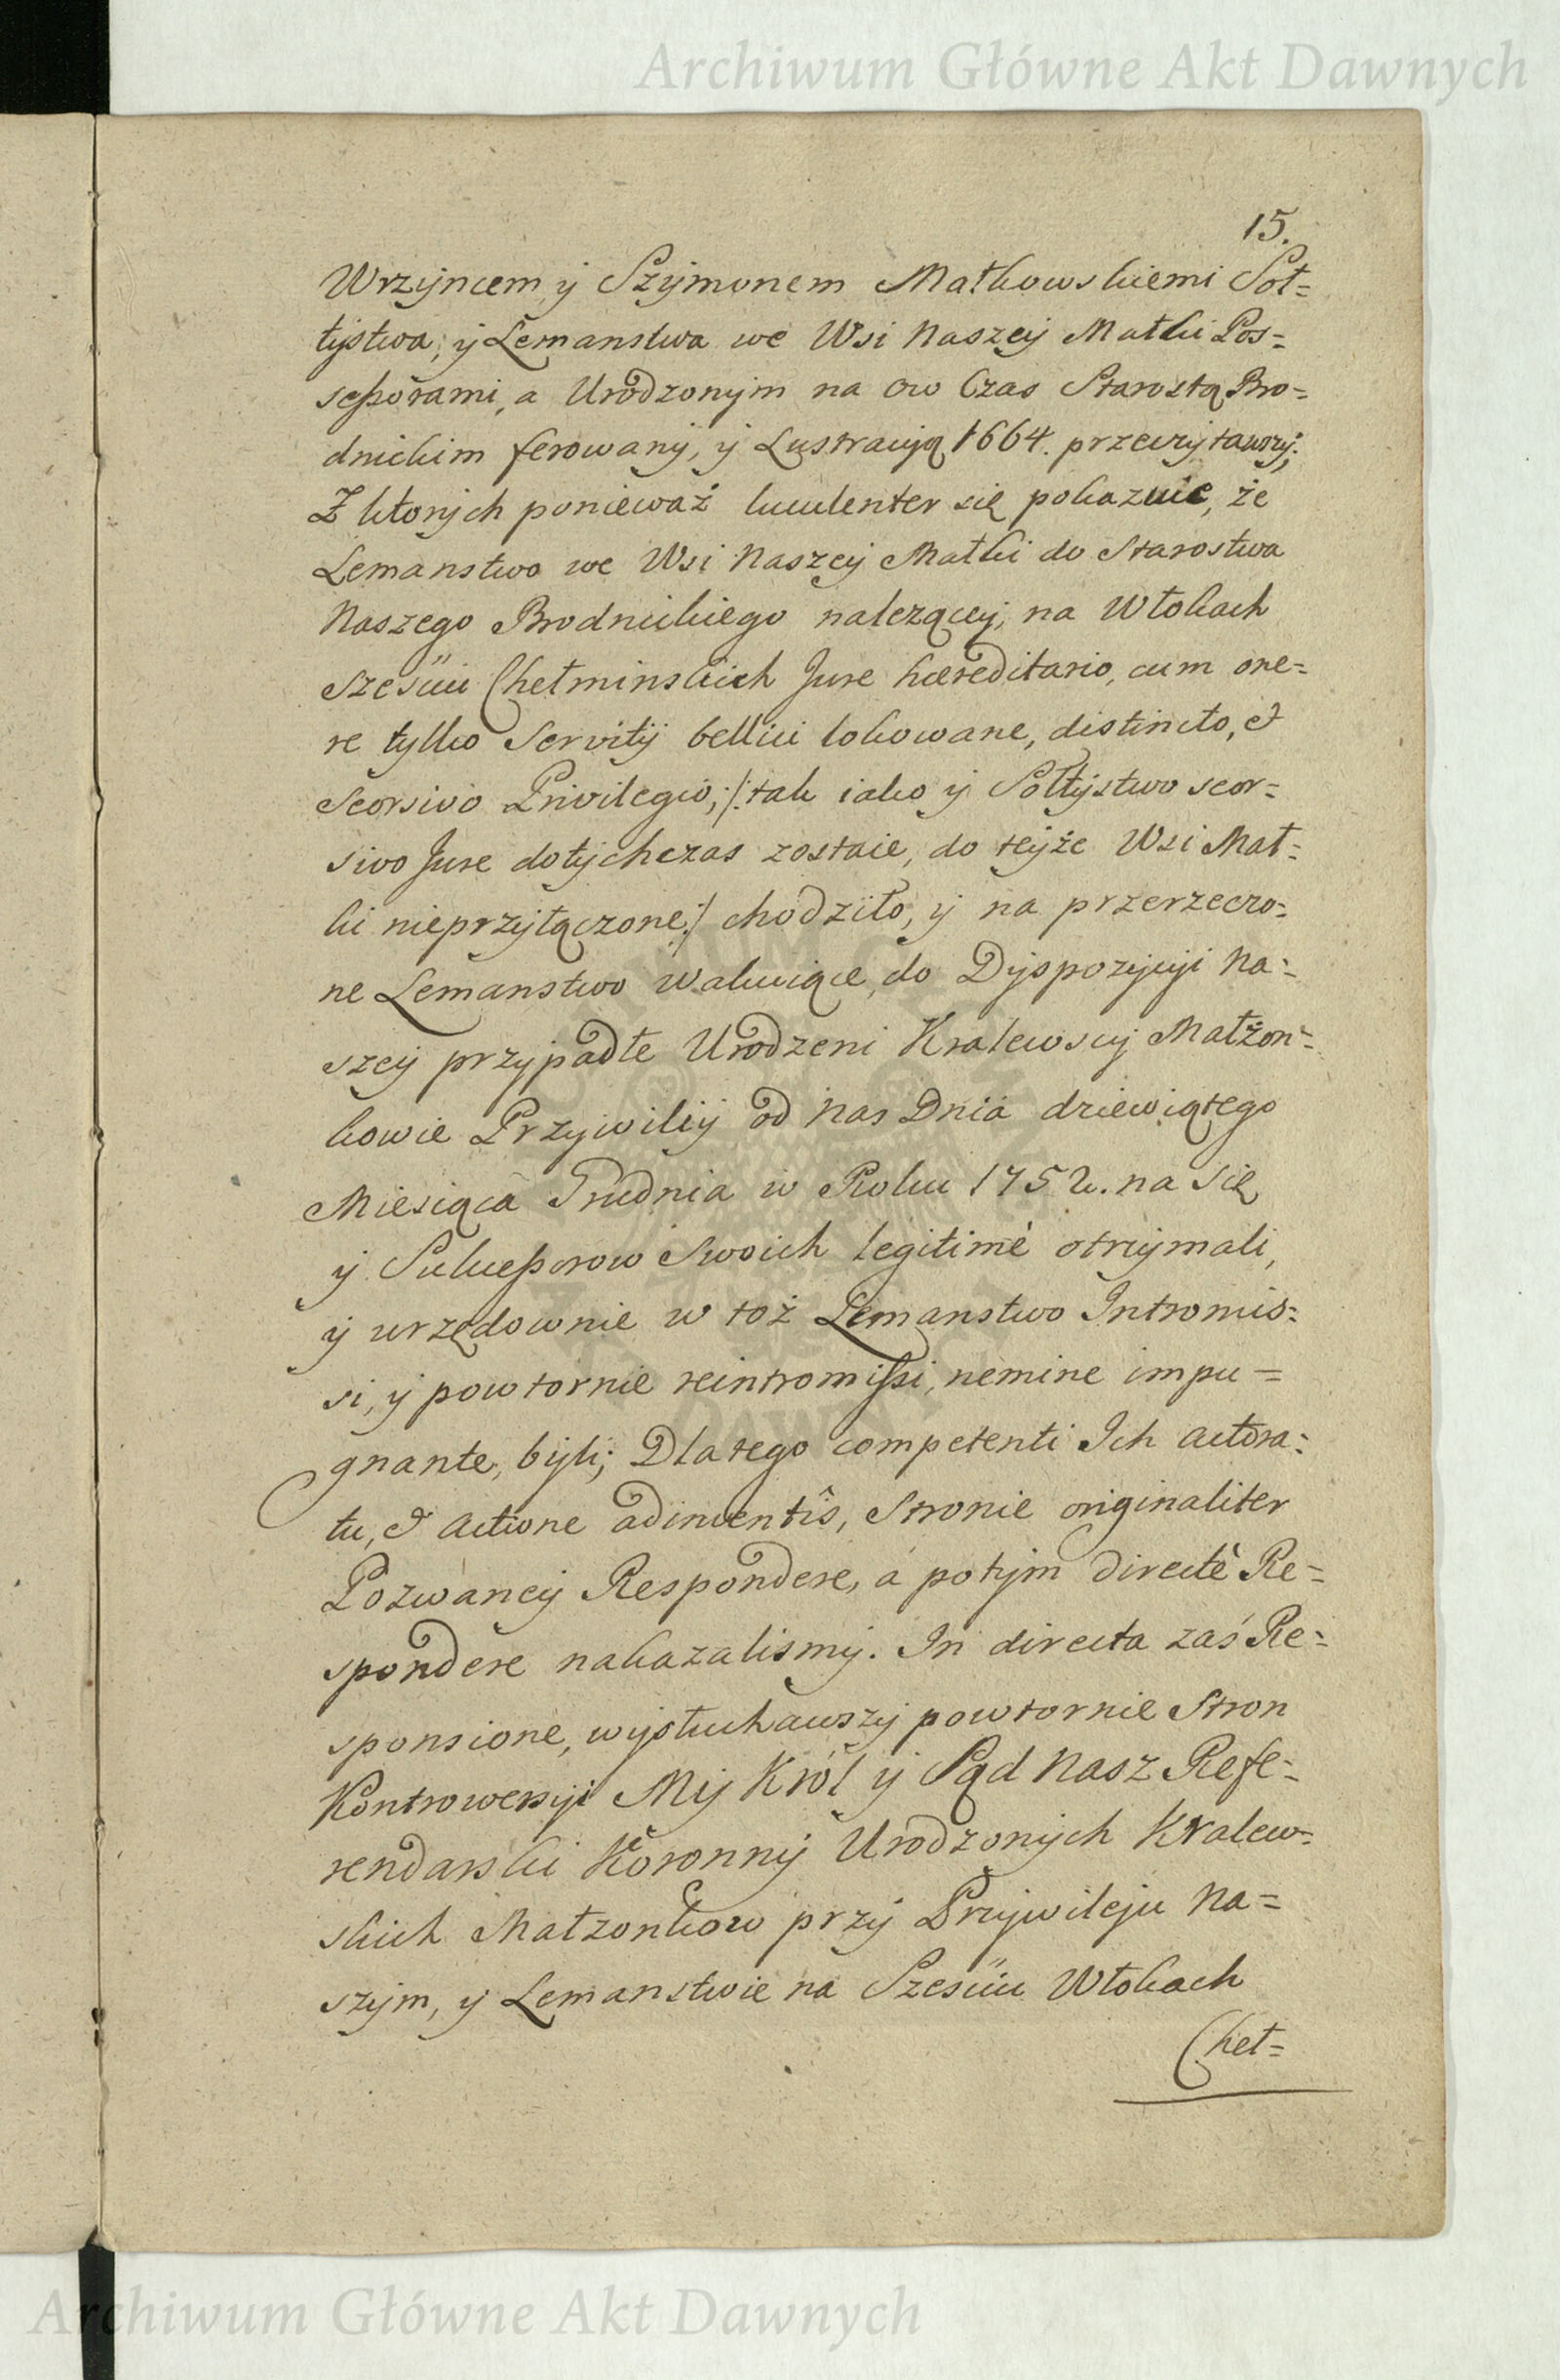 Archiwum Główne Akt Dawnych
15.
Wrzyncem, y Szymonem Małkowskiemi Soł=
tystwa, y Lemanstwa we Wsi Naszey Małki Pos=
seßorami, a Urodzonym na ow Czas Starostą Bro=
dnickim ferowany, y Lustracyą 1664. przeczytawszy;
Z ktorych ponieważ luculenter się pokazuie, że
Lemanstwo we Wsi Naszey Małki do Starostwa
Naszego Brodnickiego nalezącey, na Włokach
szesciu Chełminskich Jure hæreditario, cum one=
re tylko Servitij bellici lokowane, distincto, et
Seorsivo Privilegio, /: tak iako y Sołtystwo seor=
sivo Jure dotychczas zostaie, do teyże Wsi Mał=
ki nieprzyłączone :/ chodziło, y na przerzeczo=
ne Lemanstwo wakuiące, do Dyspozycyi Na=
szey przypadłe Urodzeni Kralewscy Małżon=
kowie Przywiley od Nas Dnia dziewiątego
Miesiąca Grudnia w Roku 1752. na się
y Sukceßorow Swoich legitimè otrzymali,
y urzędownie w toż Lemanstwo Intromis=
si, y powtornie reintromißi, nemine impu=
gnante, byli; Dlatego competenti Ich actora=
tu, et Actione adinventîs, Stronie originaliter
Pozwaney Respondere, a potym directè Re=
spondere nakazalismy. In directa zaś Re=
sponsione, wysłuchawszy powtornie Stron
Kontrowersyi My Król y Sąd Nasz Refe=
rendarski Koronny Urodzonych Kralew=
skich Małzonkow przy Przywileju Na=
szym, y Lemanstwie na Szesciu Włokach
Cheł=
Archiwum Główne Akt Dawnych